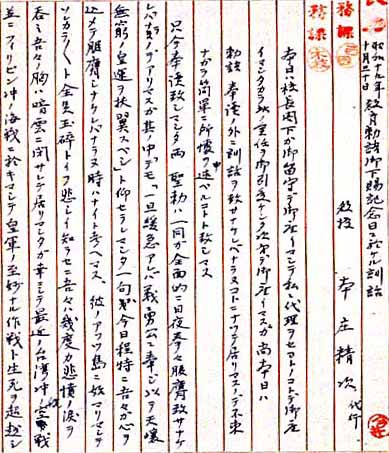 務課
務課
昭和十九年 教育勅語御下賜記念日ニ於ケル訓話
十月三十日
教授 本庄精次 代行
本日ハ校長閣下ガ御留守デ御座イマシテ私ニ代理ヲセヨトノコトデ御座
イマシタカラ
勅語奉読ノ外ニ訓話ヲ致サナケレバナラヌコトニナツテ居リマスノデ不束
ナガラ簡単ニ所懐ヲ述ベルコトト致シマス
只今奉読致シマシタ両聖勅ハ一同ガ全面的ニ日夜孜々服膺致サナケ
レバナラヌノデアリマスガ其ノ中デモ「一旦緩急アレバ義勇公ニ奉ジ以テ天壌
無窮ノ皇運ヲ扶翼スベシ」ト仰セラレマシタ一句ガ今日程特ニ吾々ガ心ヲ
込メテ服膺シナケレバナラヌ時ハナイト考ヘマス、彼ノアツツ島ニ始マリマシテ
全員玉砕トイフ悲シイ知ラセニ吾々ハ幾度カ悲憤ノ涙ヲ
呑ミ吾々ノ胸ハ暗雲ニ閉サレテ居リマシタガ幸ニシテ最近ノ台湾沖航空戦
並ニフィリピン沖ノ海戦ニ於キマシテ皇軍ノ至妙ナル作戦ト生死ヲ超越シ